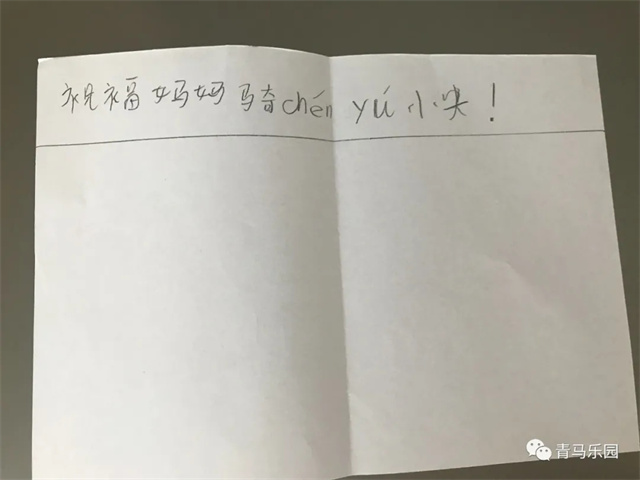 祝福妈妈骑chén yú小尖！
青马乐园